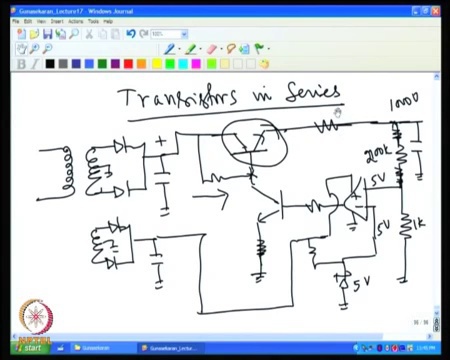 Gunasekaran_Lecture17 - Windows Journal
File Edit View Insert Actions Tools Help
100%
B I
Transistors in Series
1000
200k
5V
5V
1k
5V
start
Gunasekaran
Gunasekaran_Lectu...